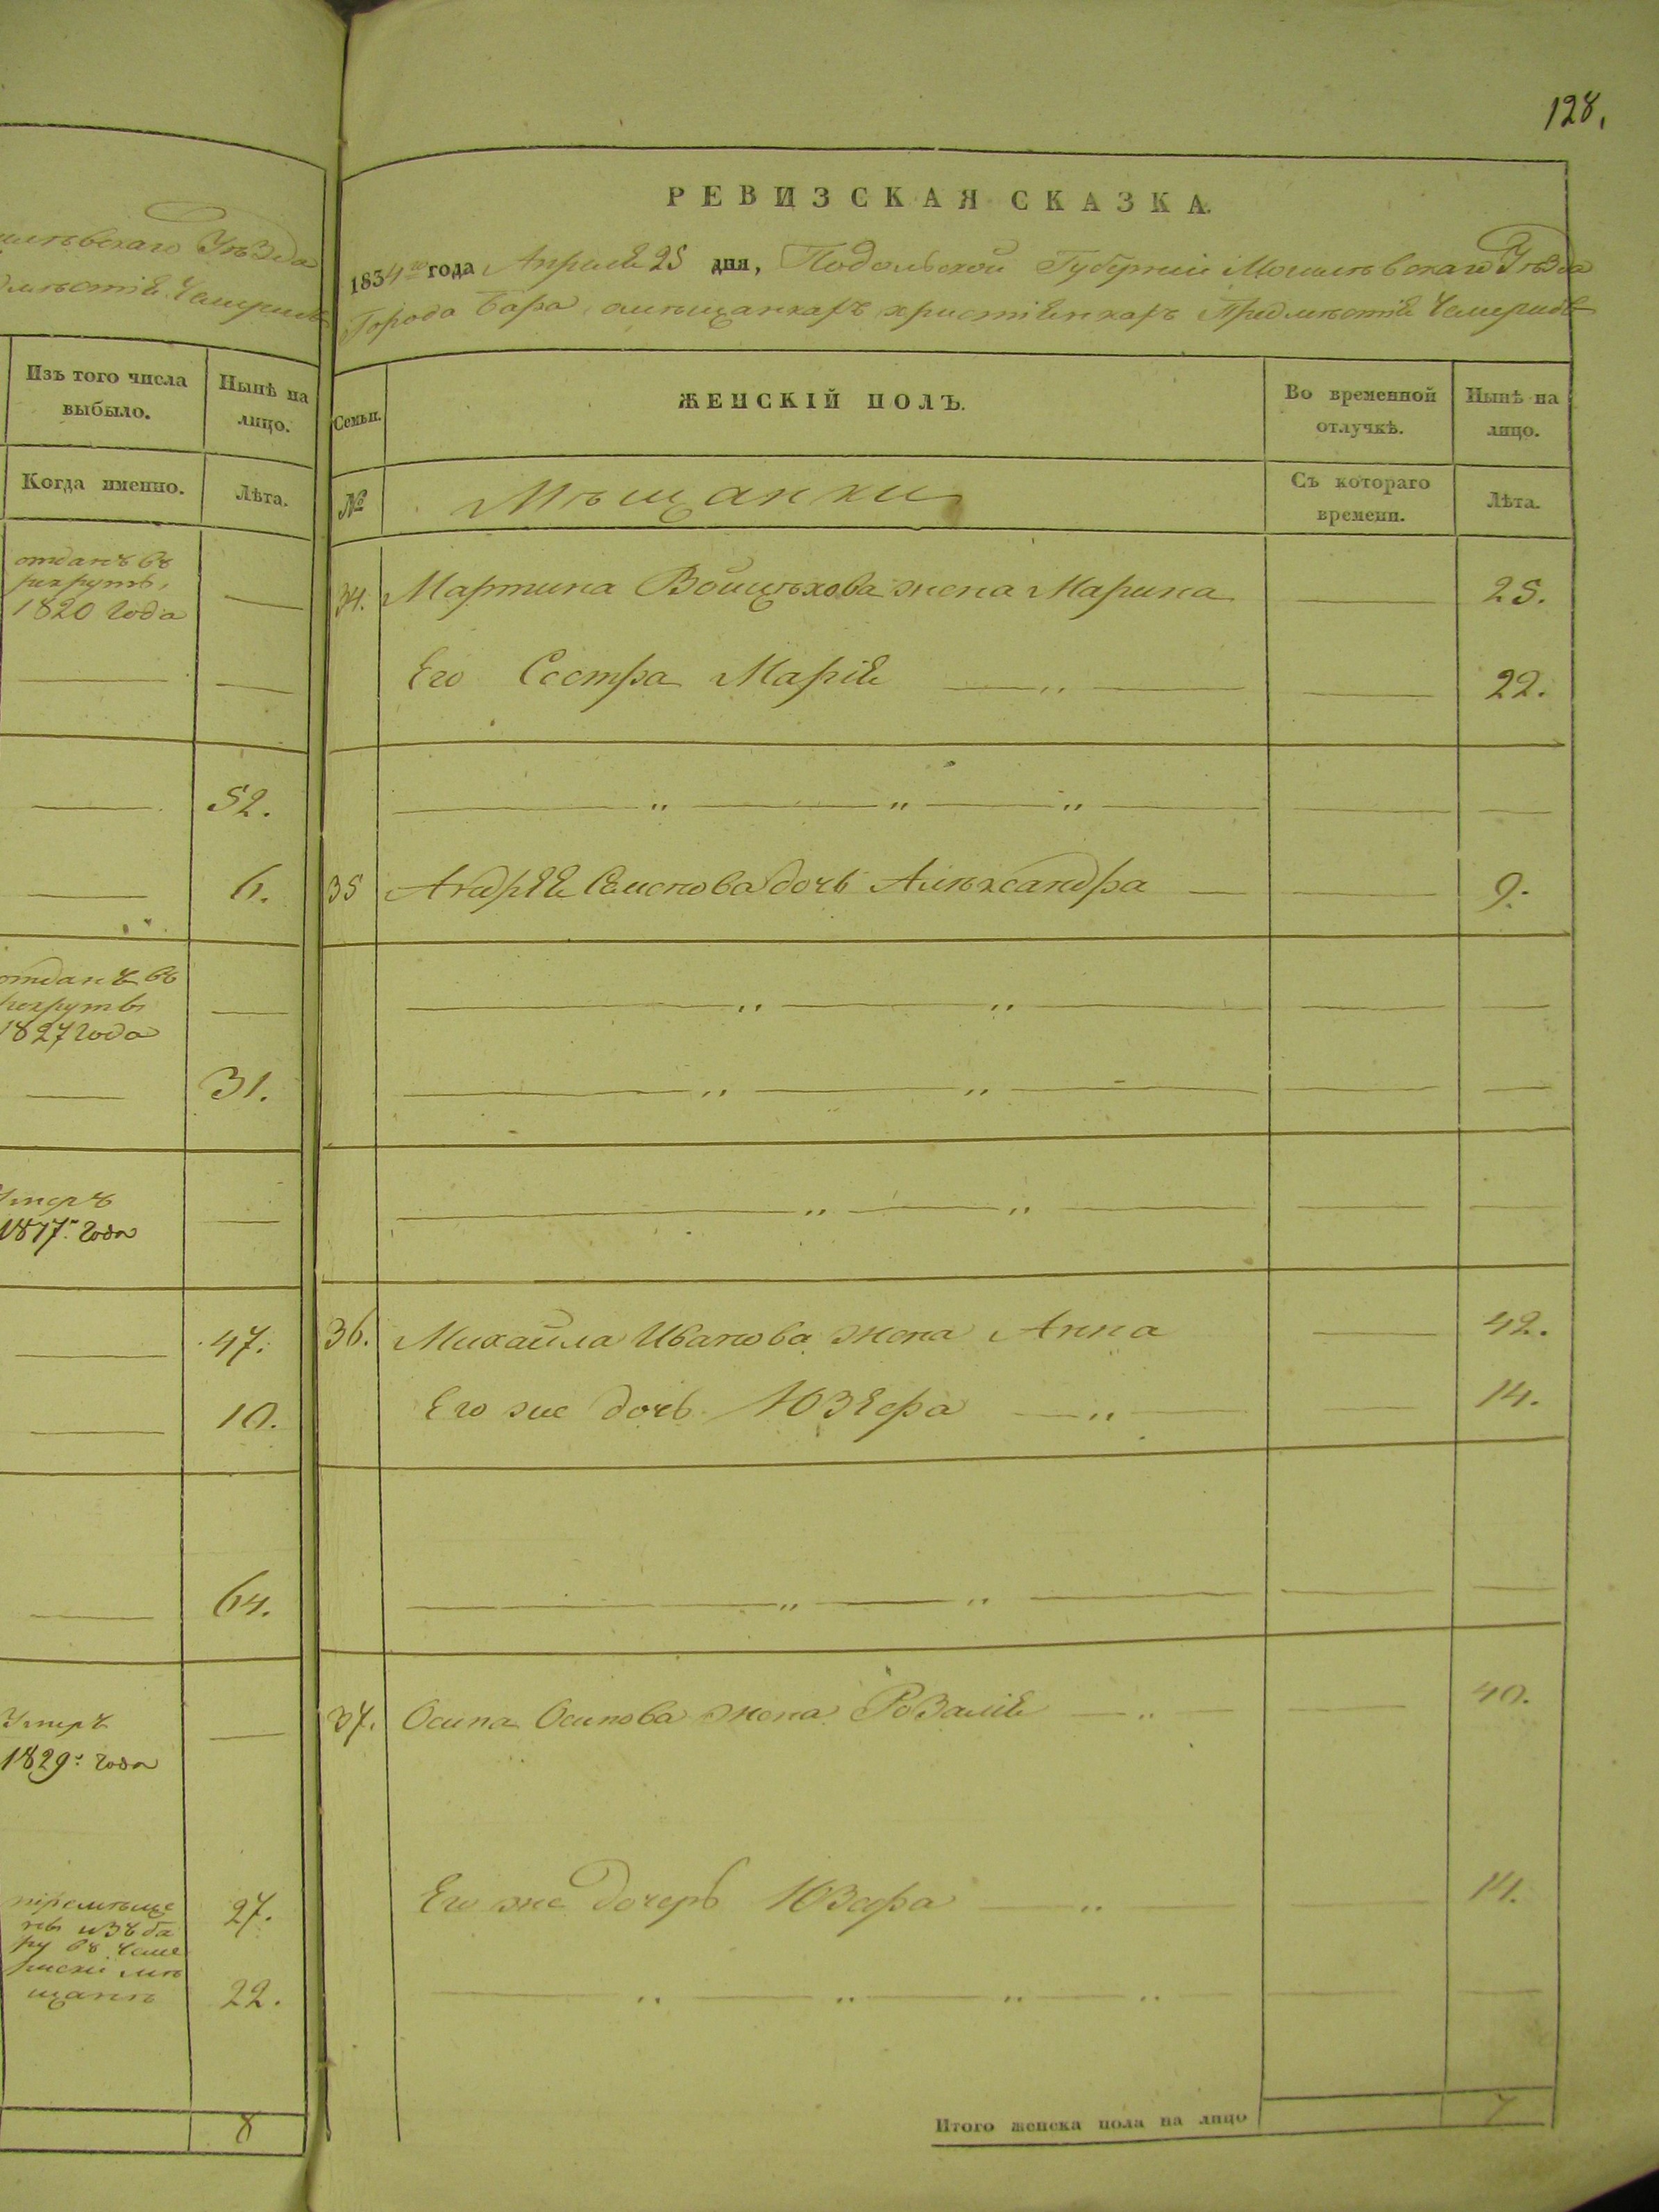 128.
РЕВИЗСКАЯ СКАЗКА.
1834го года Апреля 25 дня, Подольской Губерніи Могилевскаго Уѣзда
Города Бара, омѣщанкахъ христіянкахъ Предмѣстія
Семьи.
ЖЕНСКІЙ ПОЛЪ.
Во временной отлучкѣ.
Нынѣ на лицо.
№
Мѣщанки
Съ котораго времени.
Лѣта.
34. Мартина Войцѣхова жена Марина 25.
Его Сестра Марія 22.
35 Андрѣя Семенова дочь Алѣксандра 9.
36. Михайла Иванова жена Анна 42.
Его же дочь Юзефа 14.
37. Осипа Осипова жена Розалія 40.
Его же дочерь Юзефа 14.
Итого женска пола на лицо 7
Уѣзда
Изъ того числа выбыло.
Нынѣ на лицо.
Когда именно.
Лѣта.
отданъ въ
рекруты,
1820 года
52.
6.
отданъ въ
рекруты
1827 года
31.
Умеръ
года
47.
10.
64.
Умеръ
1829 года
27.
изъ Ба
ру въ Чеме
риски мѣ
щани
22.
8